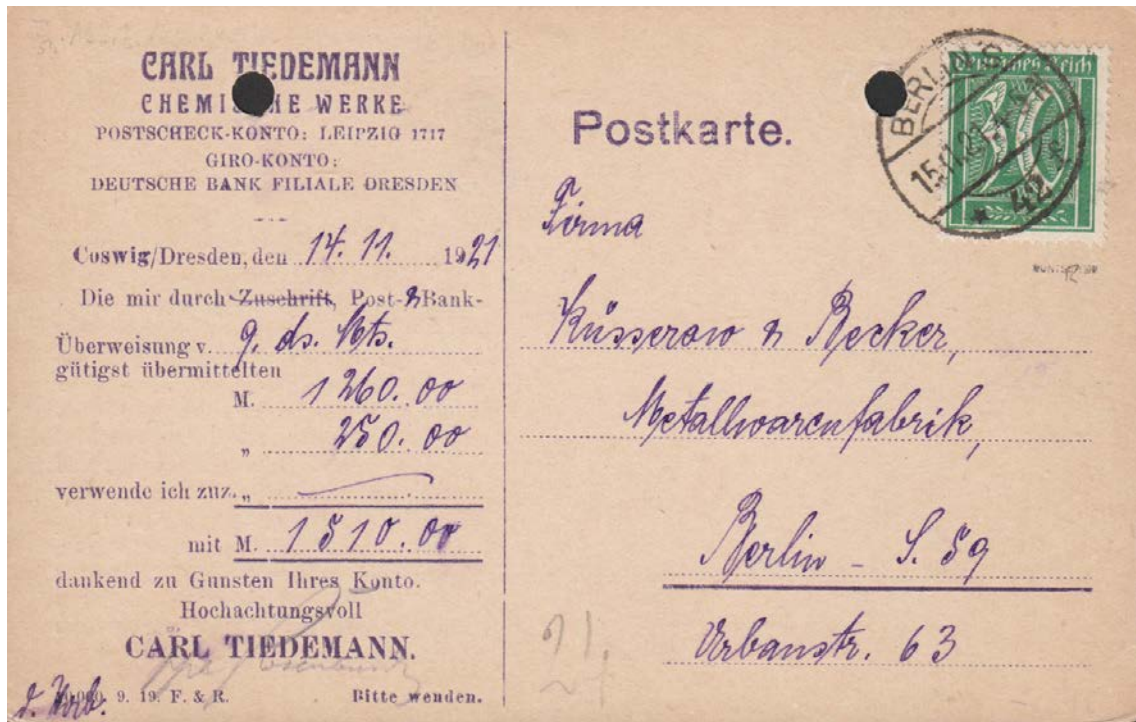 CARL TIEDEMANN
CHEMISCHE WERKE
POSTSCHECK-KONTO: LEIPZIG 1717
GIRO-KONTO:
DEUTSCHE BANK FILIALE DRESDEN
Coswig/Dresden, den 14. 11. 1921
Die mir durch Zuschrift, Post- & Bank-
Überweisung v. 9. ds. Mts.
gütigst übermittelten
M. 1 260.00
„ 250.00
verwende ich zuz. „
mit M. 1510.00
dankend zu Gunsten Ihres Konto.
Hochachtungsvoll
CARL TIEDEMANN.
9. 19. F. & R. Bitte wenden.
Postkarte.
Deutsches Reich
30
BERLIN
15.11.21
42
Firma
Küsserow & Becker,
Metallwarenfabrik,
Berlin - S. 59
Urbanstr. 63
21.